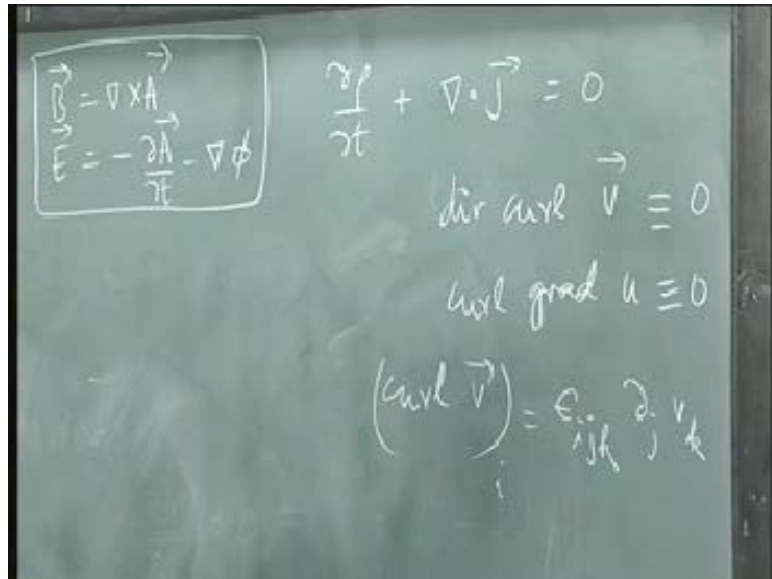 B⃗ = ∇ × A⃗
E⃗ = − ∂A⃗/∂t − ∇ϕ
∂ρ/∂t + ∇ · j⃗ = 0
div curl v⃗ ≡ 0
curl grad u ≡ 0
(curl v⃗)ᵢ = ϵᵢⱼₖ ∂ⱼ vₖ